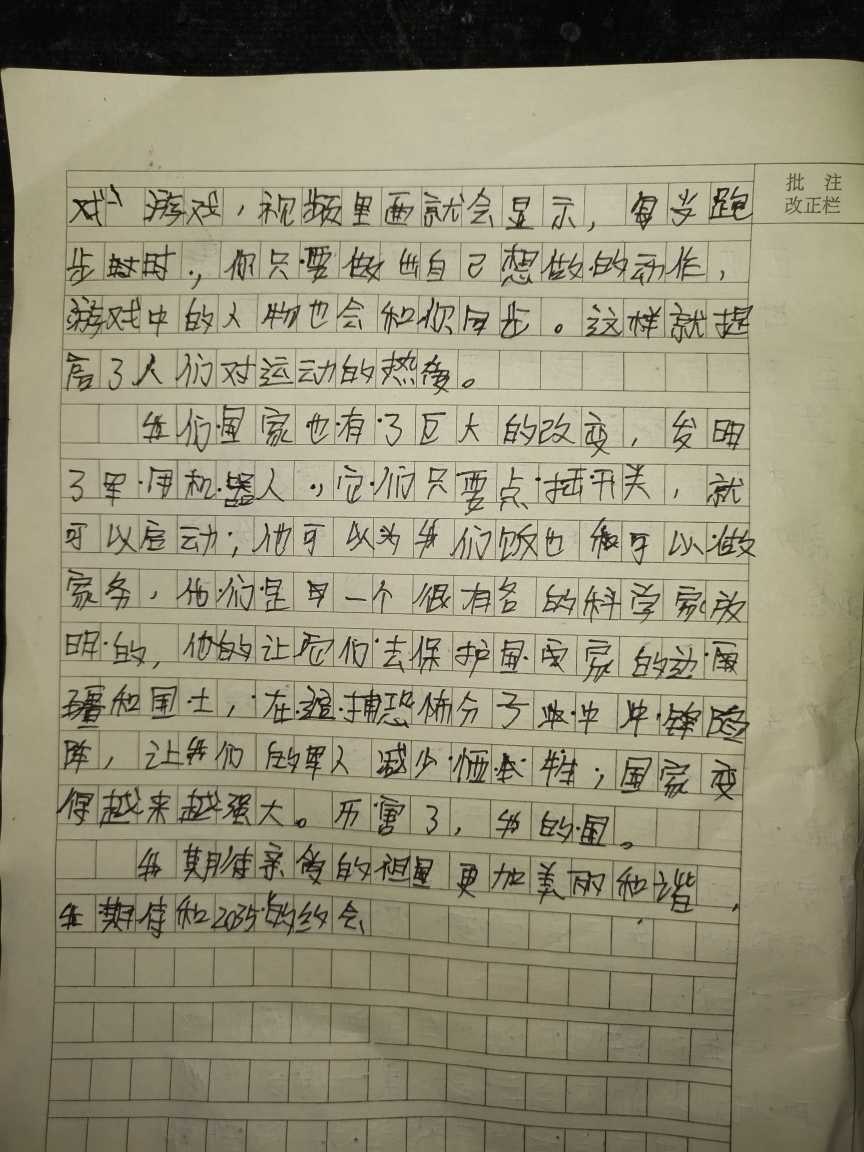 批 注
改正栏
戏" 游戏，视频里面就会显示，每当跑
步时时，你只要做出自己想做的动作，
游戏中的人物也会和你同步。这样就提
高了人们对运动的热爱。
我们国家也有了巨大的改变，发明
了军用机器人，它们只要点击开关，就
可以启动；他可以为我们饭也和可以做
家务，他们是由一个很有名的科学家放
明的，他的让它们去保护国家的边
疆和国土，在追捕恐怖分子冲冲锋陷
阵，让我们的军人减少牺牲；国家变
得越来越强大。历害了，我的国。
我期待亲爱的祖国更加美丽和谐，
我期待和2035的约会